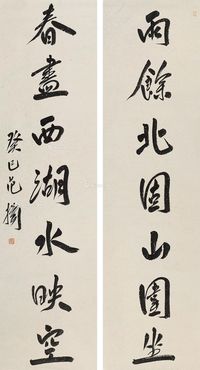 雨餘北固山圍坐
春盡西湖水映空
癸巳范